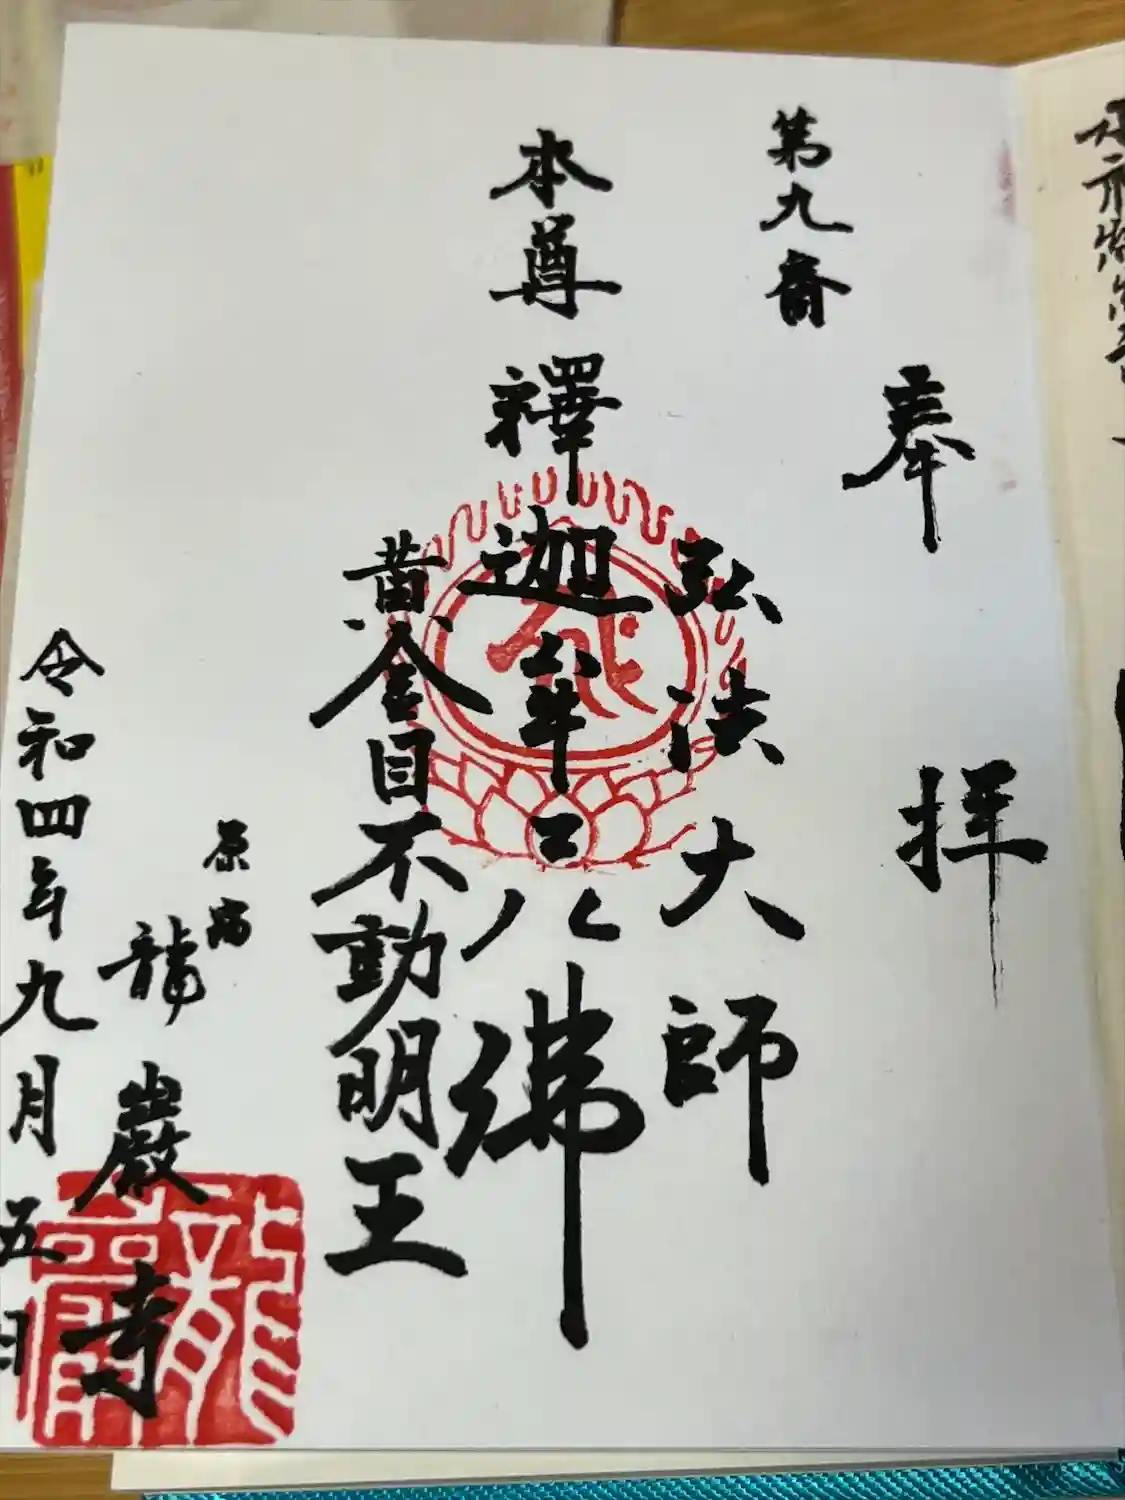 奉拝
第九番
弘法大師
本尊 釋迦牟尼佛
黄金目不動明王
原宿
龍巖寺
令和四年九月五日